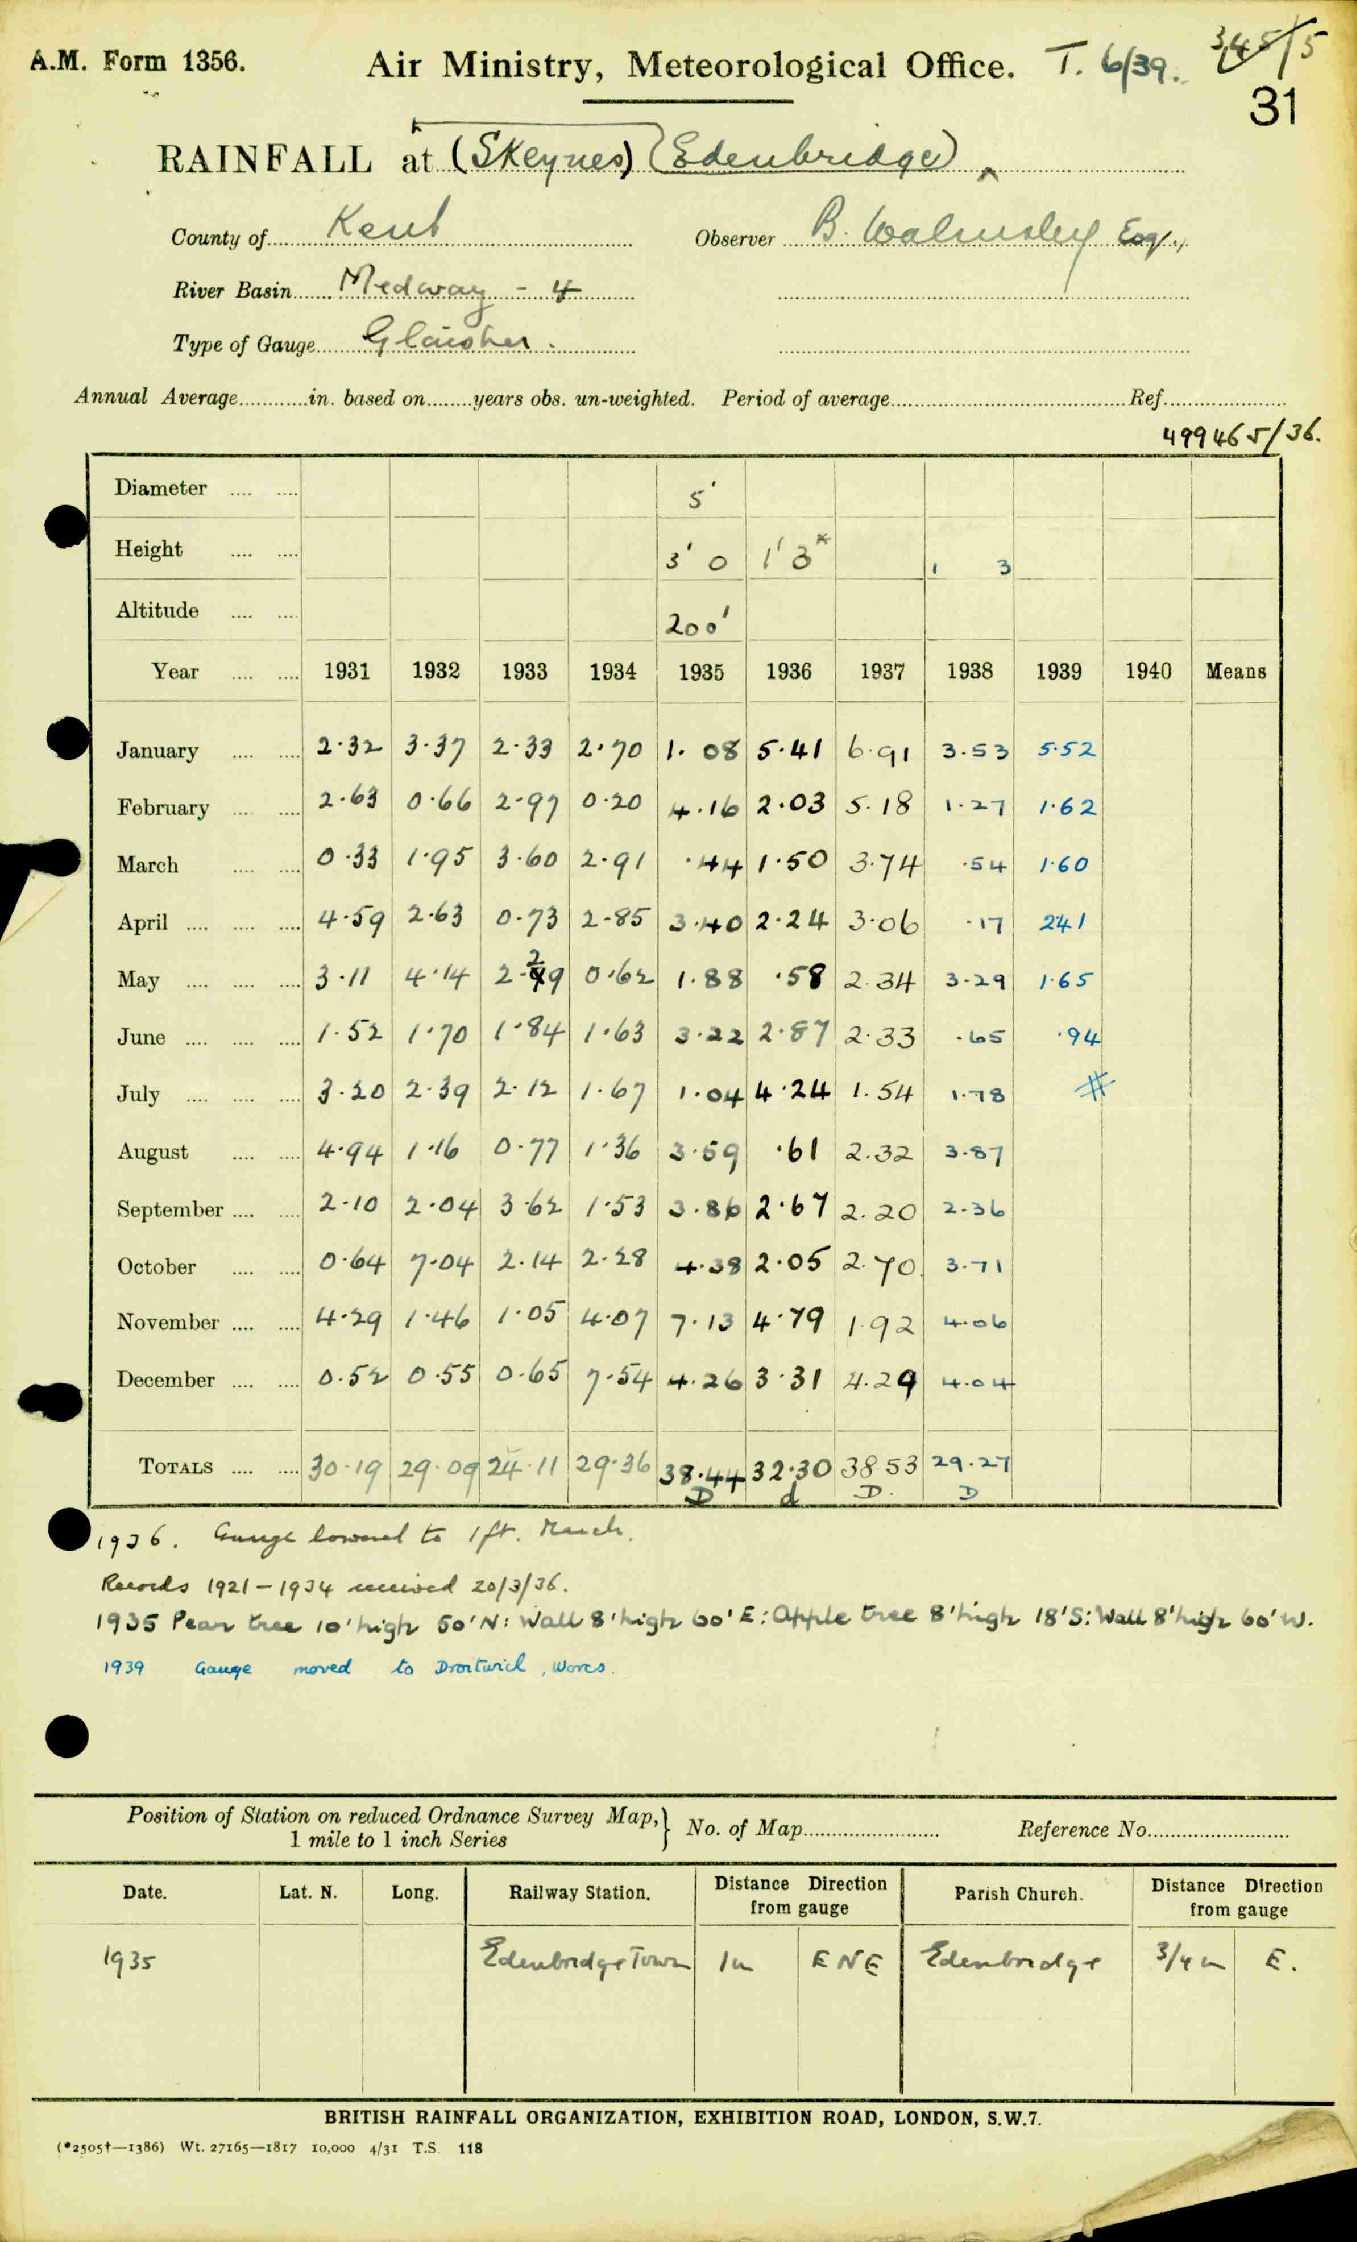 A.M. Form 1356. Air Ministry, Meteorological Office. T. 6/39. 345/5
31
RAINFALL at (Skeynes) (Edenbridge)
County of Kent Observer B. Walmsley Esq.,
River Basin Medway - 4
Type of Gauge Glaisher.
Annual Average in. based on years obs. un-weighted. Period of average Ref.
499465/36.
Diameter 5'
Height 3' 0 1' 3* 1 3
Altitude 200'
Year 1931 1932 1933 1934 1935 1936 1937 1938 1939 1940 Means
January 2.32 3.37 2.33 2.70 1.08 5.41 6.91 3.53 5.52
February 2.63 0.66 2.97 0.20 4.16 2.03 5.18 1.27 1.62
March 0.33 1.95 3.60 2.91 .44 1.50 3.74 .54 1.60
April 4.59 2.63 0.73 2.85 3.40 2.24 3.06 .17 2.41
May 3.11 4.14 2.29 0.62 1.88 .58 2.34 3.29 1.65
June 1.52 1.70 1.84 1.63 3.22 2.87 2.33 .65 .94
July 3.20 2.39 2.12 1.67 1.04 4.24 1.54 1.78 #
August 4.94 1.16 0.77 1.36 3.59 .61 2.32 3.87
September 2.10 2.04 3.62 1.53 3.86 2.67 2.20 2.36
October 0.64 7.04 2.14 2.28 4.38 2.05 2.70 3.71
November 4.29 1.46 1.05 4.07 7.13 4.79 1.92 4.06
December 0.52 0.55 0.65 7.54 4.26 3.31 4.29 4.04
TOTALS 30.19 29.09 24.11 29.36 38.44 32.30 38 53 29.27
D d D. D
1936. Gauge lowered to 1ft. March.
Records 1921-1934 received 20/3/36.
1935 Pear tree 10' high 50' N: Wall 8' high 60' E: Apple tree 8' high 18' S: Wall 8' high 60' W.
1939 Gauge moved to Droitwich, Worcs.
Position of Station on reduced Ordnance Survey Map, } No. of Map Reference No.
1 mile to 1 inch Series
Date. Lat. N. Long. Railway Station. Distance Direction from gauge Parish Church. Distance Direction from gauge
1935 Edenbridge Town 1m ENE Edenbridge 3/4 m E.
BRITISH RAINFALL ORGANIZATION, EXHIBITION ROAD, LONDON, S.W.7.
(*2505†—1386) Wt. 27165—1817 10,000 4/31 T.S. 118